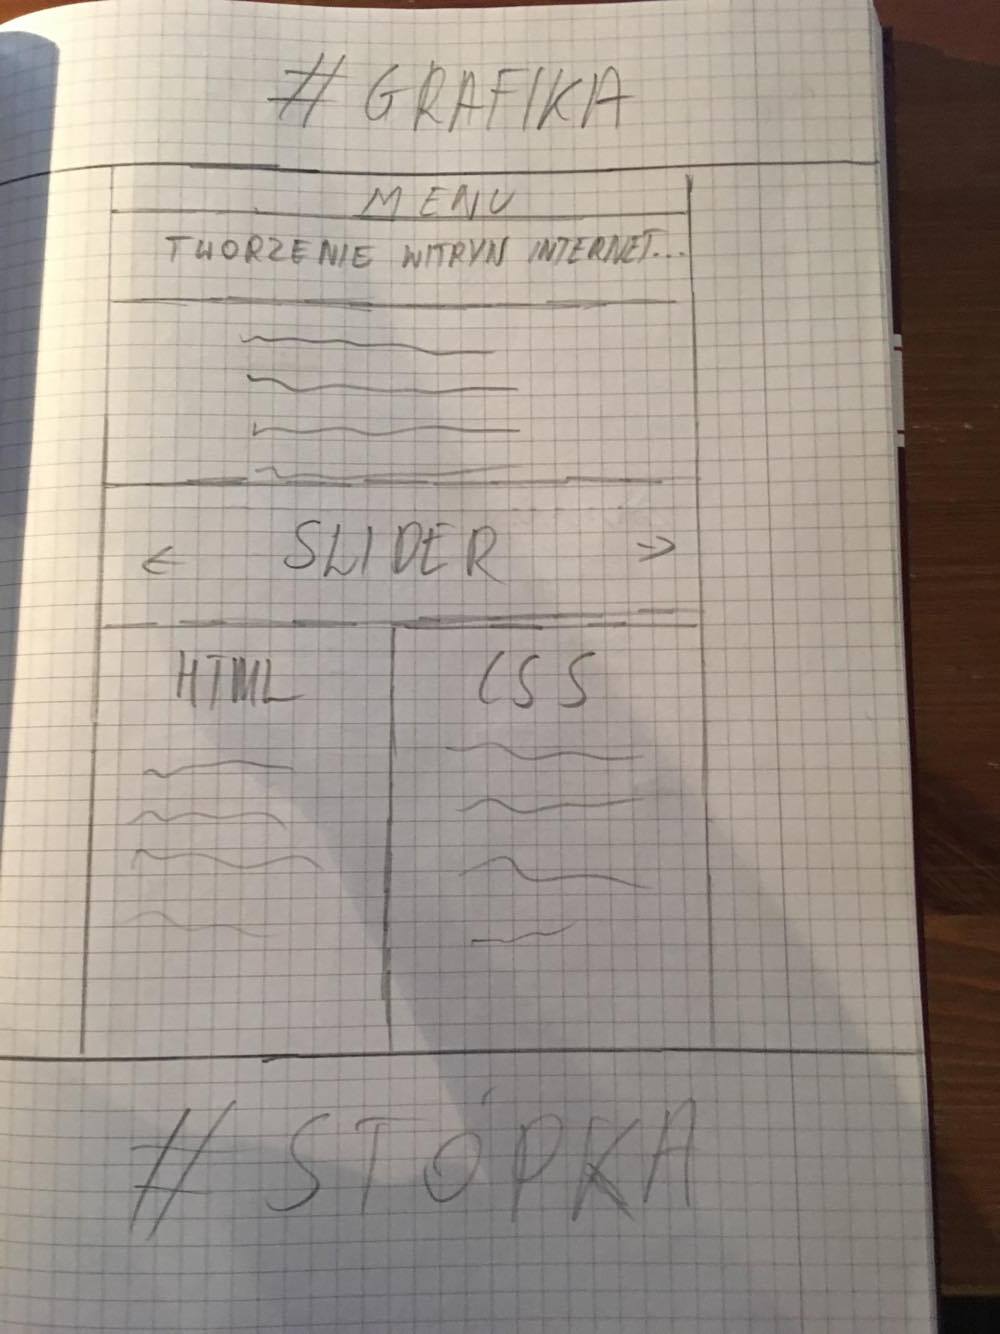 # GRAFIKA
MENU
TWORZENIE WITRYN INTERNET...
← SLIDER →
HTML CSS
# STÓPKA